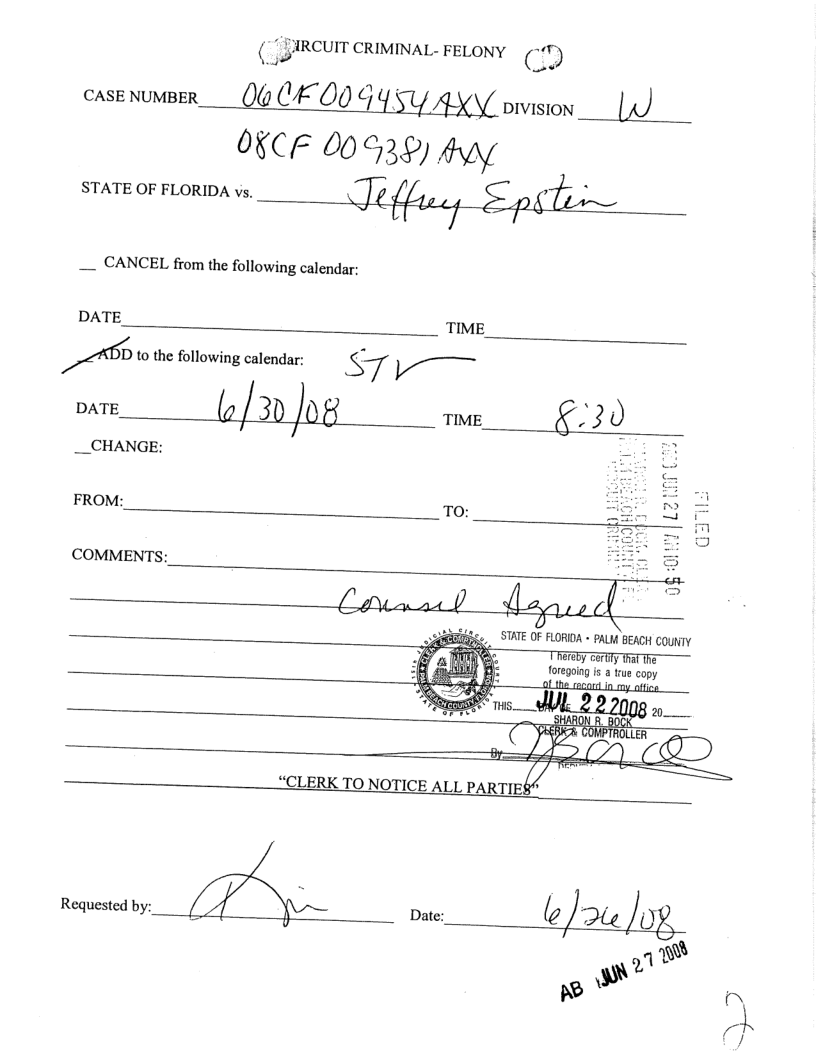 CIRCUIT CRIMINAL- FELONY
CASE NUMBER 06CF009454AXX DIVISION W
08CF 009381 AXX
STATE OF FLORIDA vs. Jeffrey Epstein
__ CANCEL from the following calendar:
DATE TIME
__ ADD to the following calendar:
DATE 6/30/08 TIME 8:30
__CHANGE:
FROM: TO:
FILED
JUN 27 AM 10: 50
PALM BEACH COUNTY, FL
COMMENTS:
Counsel Agreed
STATE OF FLORIDA • PALM BEACH COUNTY
I hereby certify that the
foregoing is a true copy
of the record in my office
THIS DAY OF JUL 22 2008 20
SHARON R. BOCK
CLERK & COMPTROLLER
By
"CLERK TO NOTICE ALL PARTIES"
Requested by: Date: 6/26/08
AB JUN 27 2008
2